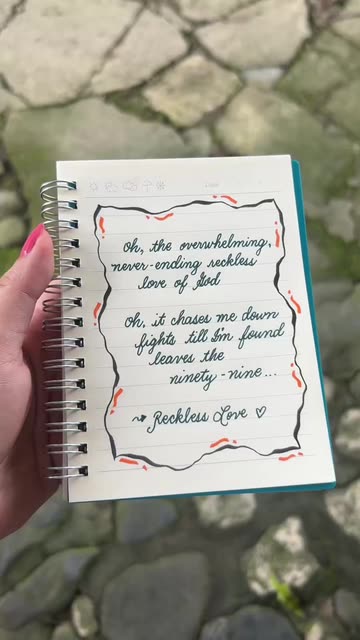 oh, the overwhelming,
never-ending reckless
love of God
oh, it chases me down
fights till I'm found
leaves the
ninety-nine...
~ Reckless Love ♡